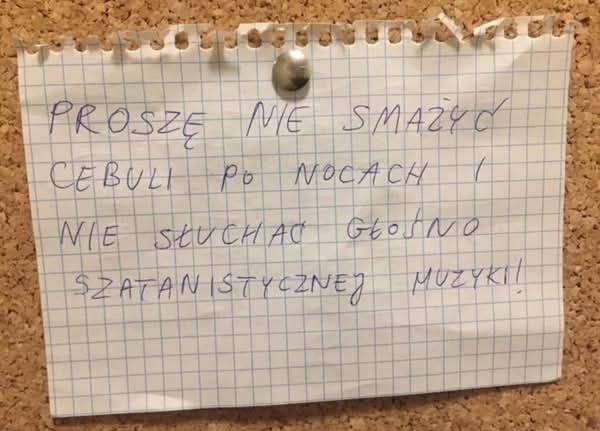 PROSZĘ NIE SMAŻYĆ
CEBULI PO NOCACH I
NIE SŁUCHAĆ GŁOŚNO
SZATANISTYCZNEJ MUZYKI!